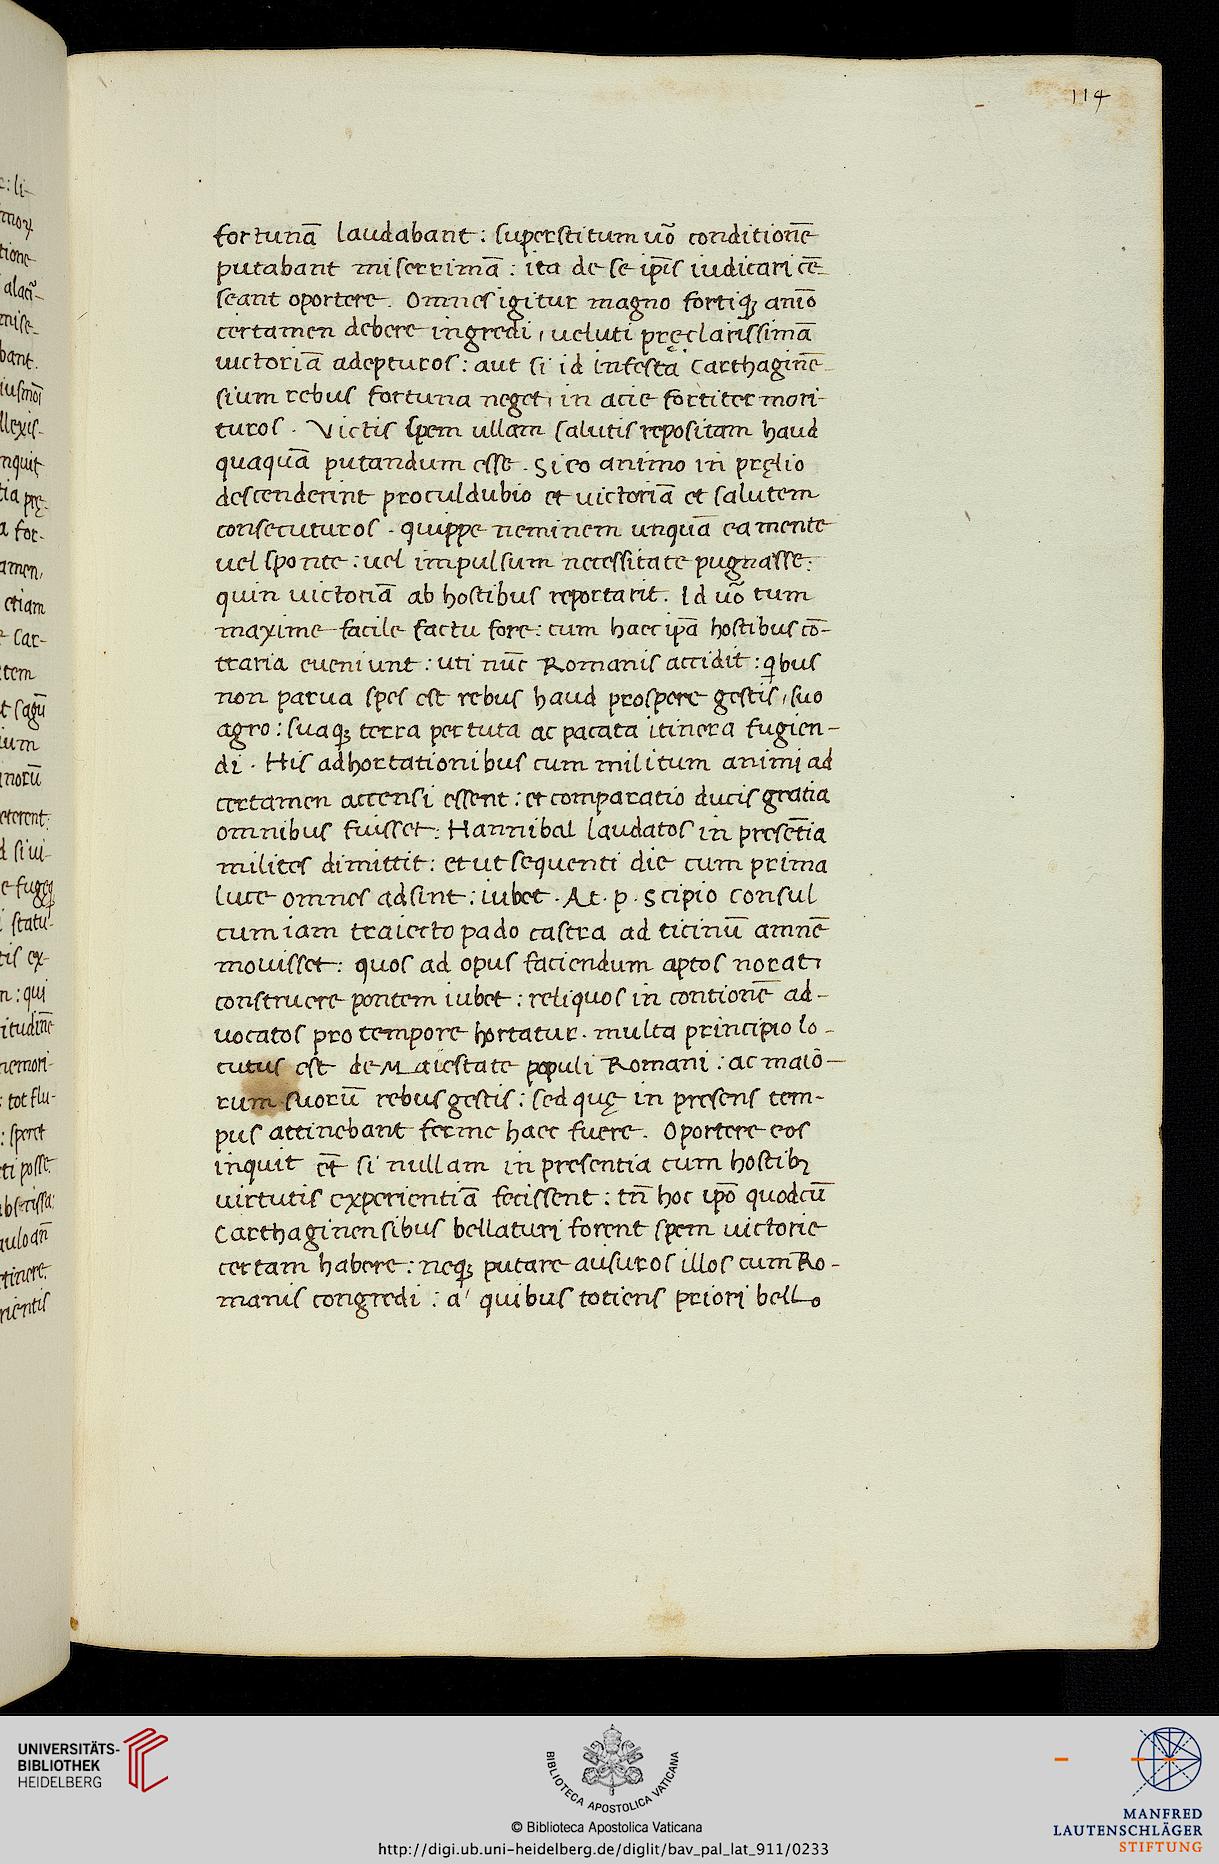 114
fortunā laudabant : superstitum uō conditionē
putabant miserrimā : ita de se ip̄is iudicari cē-
seant oportere. Omnes igitur magno fortiq; anīo
certamen debere ingredi, ueluti pręclarissimā
uictoriā adepturos : aut si id infesta Carthaginē-
sium rebus fortuna neget, in acie fortiter mori-
turos . Victis spem ullam salutis repositam haud
quaquā putandum esse . Si eo animo in pręlio
descenderint proculdubio et uictoriā et salutem
consecuturos . quippe neminem unquā ea mente
uel sponte : uel impulsum necessitate pugnasse :
quin uictoriā ab hostibus reportarit. Id uō tum
maxime facile factu fore : cum haec ip̄a hostibus cō-
traria eueniunt : uti nūc Romanis accidit : qibus
non parua spes est rebus haud prospere gestis, suo
agro : suaq; terra per tuta ac pacata itinera fugien-
di . His adhortationibus cum militum animi ad
certamen accensi essent : et comparatio ducis gratia
omnibus fuisset : Hannibal laudatos in presētia
milites dimittit : et ut sequenti die cum prima
luce omnes adsint : iubet . At . p . Scipio Consul
cum iam traiecto pado castra ad ticinū amnē
mouisset : quos ad opus faciendum aptos norat,
construere pontem iubet : reliquos in contionē ad-
uocatos pro tempore hortatur . multa principio lo-
cutus est de Maiestate populi Romani : ac maiō-
rum suorū rebus gestis : sed quę in presens tem-
pus attinebant ferme haec fuere. Oportere eos
inquit et̄ si nullam in presentia cum hostibꝫ
uirtutis experientiā fecissent : tn̄ hoc ip̄o quodcū
Carthaginensibus bellaturi forent spem uictorie
certam habere : neq; putare ausuros illos cum Ro-
manis congredi : a' quibus totiens priori bello
UNIVERSITÄTS-
BIBLIOTHEK
HEIDELBERG
BIBLIOTECA APOSTOLICA VATICANA
© Biblioteca Apostolica Vaticana
http://digi.ub.uni-heidelberg.de/diglit/bav_pal_lat_911/0233
MANFRED
LAUTENSCHLÄGER
STIFTUNG